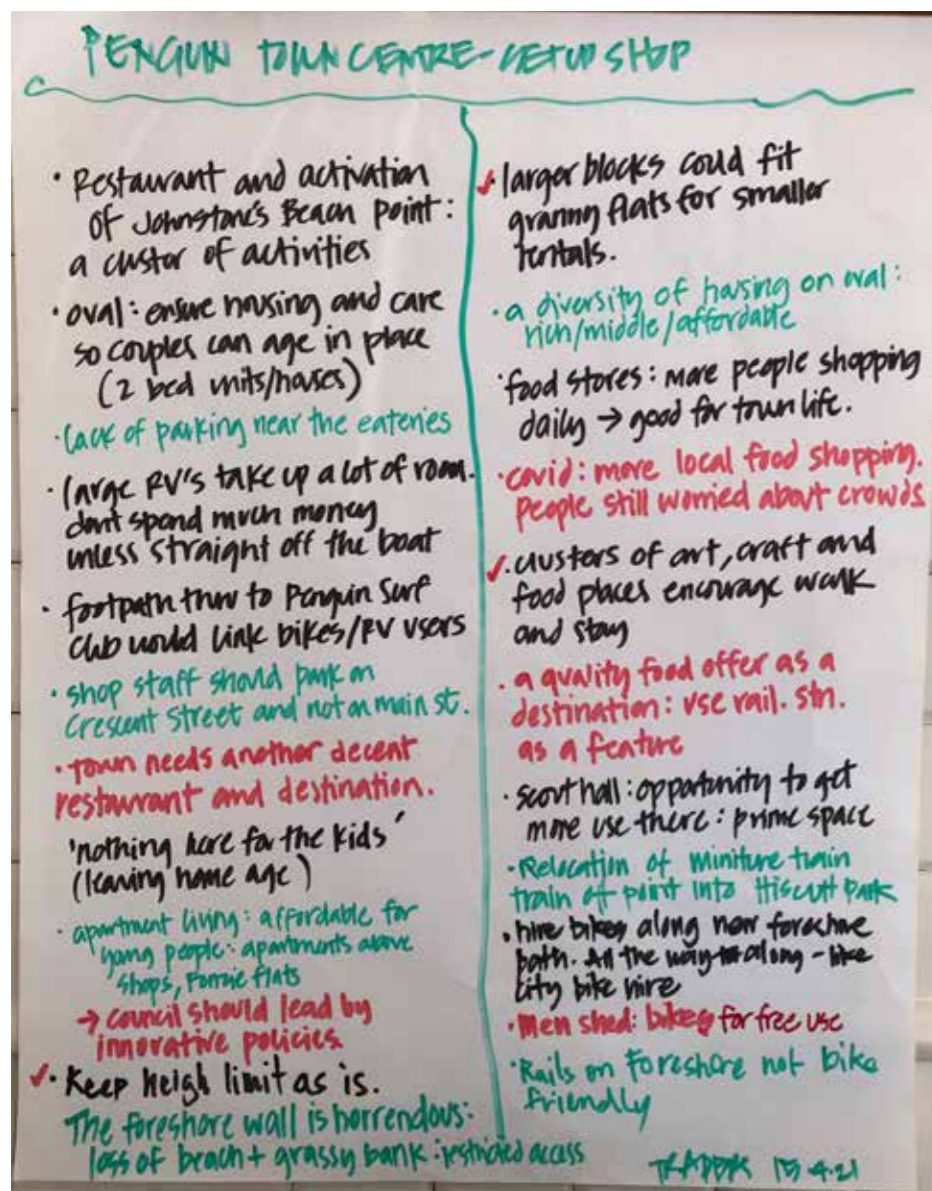 PENGUIN TOWN CENTRE - SETUP SHOP
• Restaurant and activation
of Johnstone's Beach point:
a custor of activities
• oval: ensure housing and care
so couples can age in place
(2 bed units/houses)
• lack of parking near the eateries
• large RV's take up a lot of room.
dont spend much money
unless straight off the boat
• footpath thru to Penguin Surf
Club would link bikes/RV users
• shop staff should park on
Crescent Street and not on main st.
• town needs another decent
restaurant and destination.
'nothing here for the kids'
(leaving home age)
• apartment living: affordable for
young people: apartments above
shops, Fonzie flats
→ council should lead by
innovative policies
✓• Keep heigh limit as is.
The foreshore wall is horrendous:
loss of beach + grassy bank: restricted access
✓• larger blocks could fit
granny flats for smaller
rentals.
• a diversity of housing on oval:
rich/middle/affordable
• food stores: more people shopping
daily → good for town life.
• covid: more local food shopping.
People still worried about crowds
✓• clusters of art, craft and
food places encourage walk
and stay
• a quality food offer as a
destination: use rail. stn.
as a feature
• scout hall: opportunity to get
more use there: prime space
• Relocation of miniture train
train off point into Hiscutt Park
• hire bikes along new foreshore
path. All the way along - like
city bike hire
• Men shed: bikes for free use
• Rails on Foreshore not bike
friendly
4.21